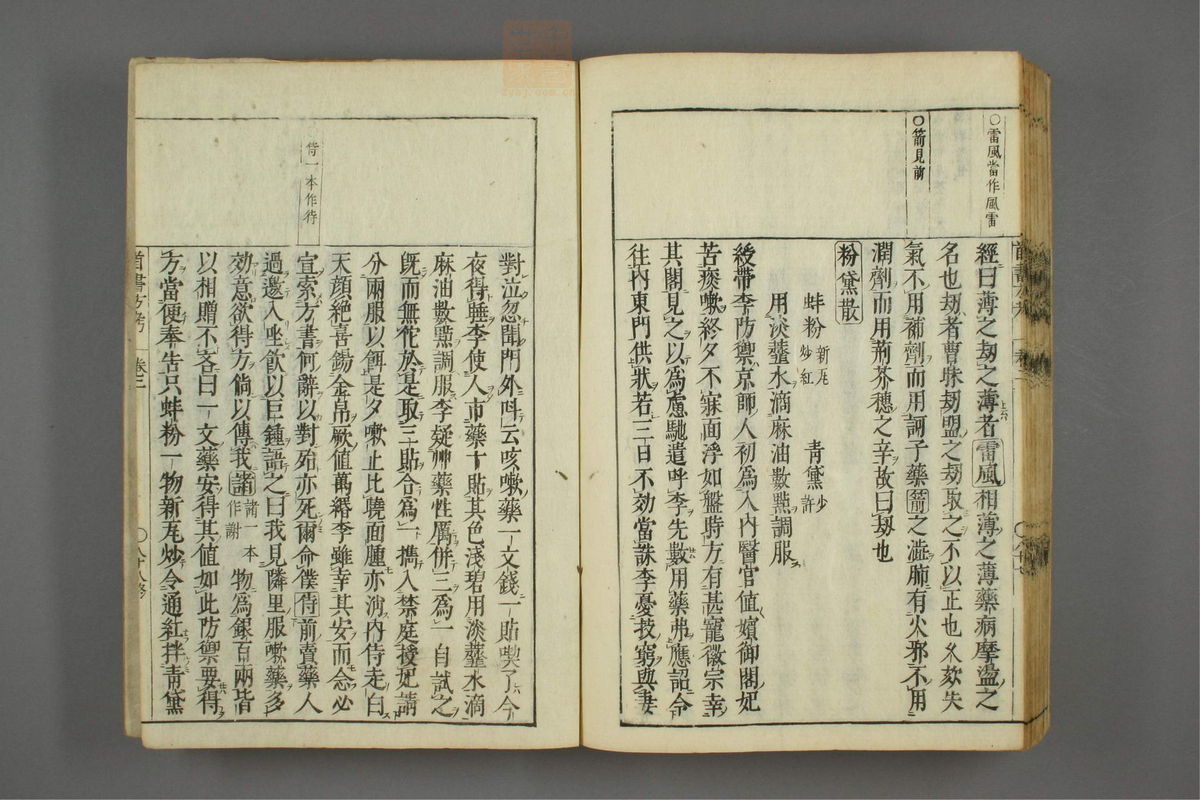 ○雷風當作風雷
○箭見前
經曰薄之劫之薄者雷風相薄之薄藥病摩盪之
名也劫者曹昧劫盟之劫取之不以正也久欬失
氣不用補劑而用訶子藥箭之澁肺有火邪不用
潤劑而用荊芥穗之辛故曰劫也
粉黛散
蚌粉新瓦炒紅 青黛少許
用淡虀水滴麻油數點調服
綬帶李防禦京師人初為入內醫官值嬪御閣妃
苦痰嗽終夕不寐面浮如盤時方有甚寵徽宗幸
其閣見之以為慮馳遣呼李先數用藥弗應詔令
往內東門供狀若三日不効當誅李憂技窮與妻
待一本作侍
對泣忽聞門外呌云咳嗽藥一文錢一貼喫了今
夜得睡李使人市藥十貼其色淺碧用淡虀水滴
麻油數點調服李疑艸藥性厲併三為一自試之
旣而無佗於是取三貼合為一擕入禁庭授妃請
分兩服以餌是夕嗽止比曉面腫亦消內侍走白
天顏絕喜錫金帛厥值萬緡李雖幸其安而念必
宣索方書何辭以對殆亦死爾命僕侍前賣藥人
過邀入坐飮以巨鍾語之曰我見隣里服嗽藥多
効意欲得方倘以傳我諸諸一本作謝物為銀百兩皆
以相贈不吝曰一文藥安得其值如此防禦要得
方當便奉吿只蚌粉一物新瓦炒令通紅拌青黛
首書方考 卷三 ○八十八